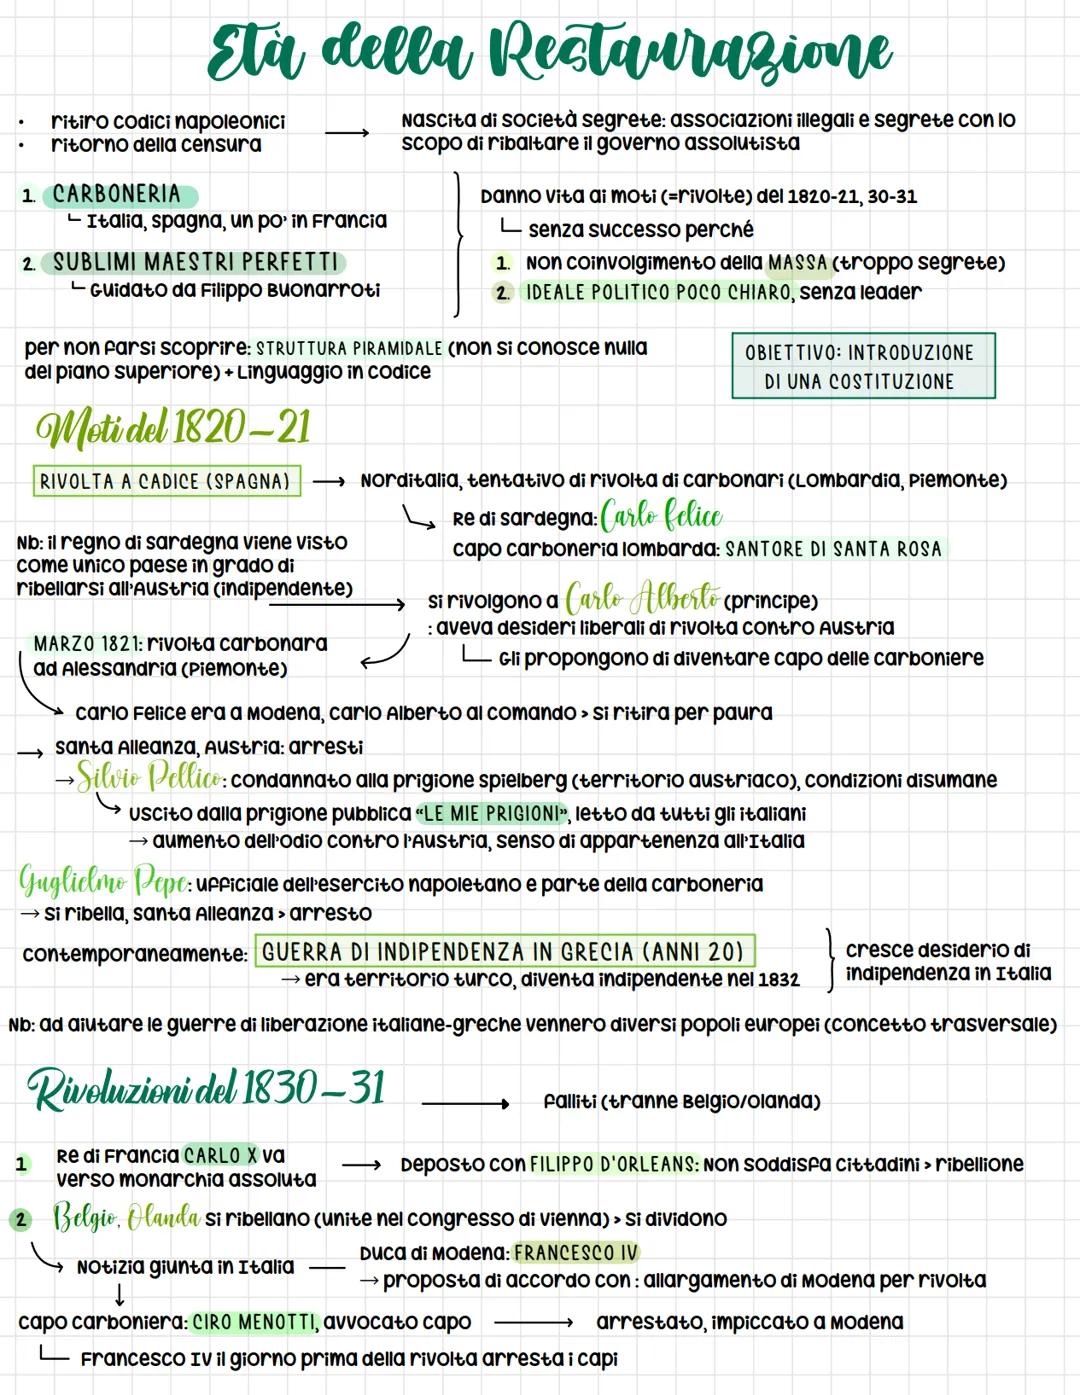 Età della Restaurazione
• ritiro codici napoleonici
• ritorno della censura
→ Nascita di società segrete: associazioni illegali e segrete con lo
scopo di ribaltare il governo assolutista
1. CARBONERIA
Italia, Spagna, un po' in Francia
2. SUBLIMI MAESTRI PERFETTI
Guidato da Filippo Buonarroti
Danno vita ai moti (=rivolte) del 1820-21, 30-31
senza successo perché
1. Non coinvolgimento della MASSA (troppo segrete)
2. IDEALE POLITICO POCO CHIARO, senza leader
per non farsi scoprire: STRUTTURA PIRAMIDALE (non si conosce nulla
del piano superiore) + Linguaggio in codice
OBIETTIVO: INTRODUZIONE
DI UNA COSTITUZIONE
Moti del 1820-21
RIVOLTA A CADICE (SPAGNA) → Norditalia, tentativo di rivolta di carbonari (Lombardia, Piemonte)
Re di Sardegna: Carlo felice
capo carboneria lombarda: SANTORE DI SANTA ROSA
Nb: il regno di Sardegna viene visto
come unico paese in grado di
ribellarsi all'Austria (indipendente)
si rivolgono a Carlo Alberto (principe)
: aveva desideri liberali di rivolta contro Austria
Gli propongono di diventare capo delle carboniere
MARZO 1821: rivolta carbonara
ad Alessandria (Piemonte)
carlo Felice era a Modena, carlo Alberto al comando > si ritira per paura
→ Santa Alleanza, Austria: arresti
→ Silvio Pellico: condannato alla prigione spielberg (territorio austriaco), condizioni disumane
uscito dalla prigione pubblica "LE MIE PRIGIONI", letto da tutti gli italiani
→ aumento dell'odio contro l'Austria, senso di appartenenza all'Italia
Guglielmo Pepe: ufficiale dell'esercito napoletano e parte della carboneria
→ si ribella, Santa Alleanza > arresto
contemporaneamente: GUERRA DI INDIPENDENZA IN GRECIA (ANNI 20)
→ era territorio turco, diventa indipendente nel 1832
cresce desiderio di
indipendenza in Italia
Nb: ad aiutare le guerre di liberazione italiane-greche vennero diversi popoli europei (concetto trasversale)
Rivoluzioni del 1830-31 → falliti (tranne Belgio/Olanda)
1 Re di Francia CARLO X va
verso monarchia assoluta
→ Deposto con FILIPPO D'ORLEANS: Non soddisfa cittadini > ribellione
2 Belgio, Olanda si ribellano (unite nel congresso di vienna) > si dividono
Notizia giunta in Italia
Duca di Modena: FRANCESCO IV
→ proposta di accordo con : allargamento di Modena per rivolta
capo carboniera: CIRO MENOTTI, avvocato capo → arrestato, impiccato a Modena
Francesco IV il giorno prima della rivolta arresta i capi